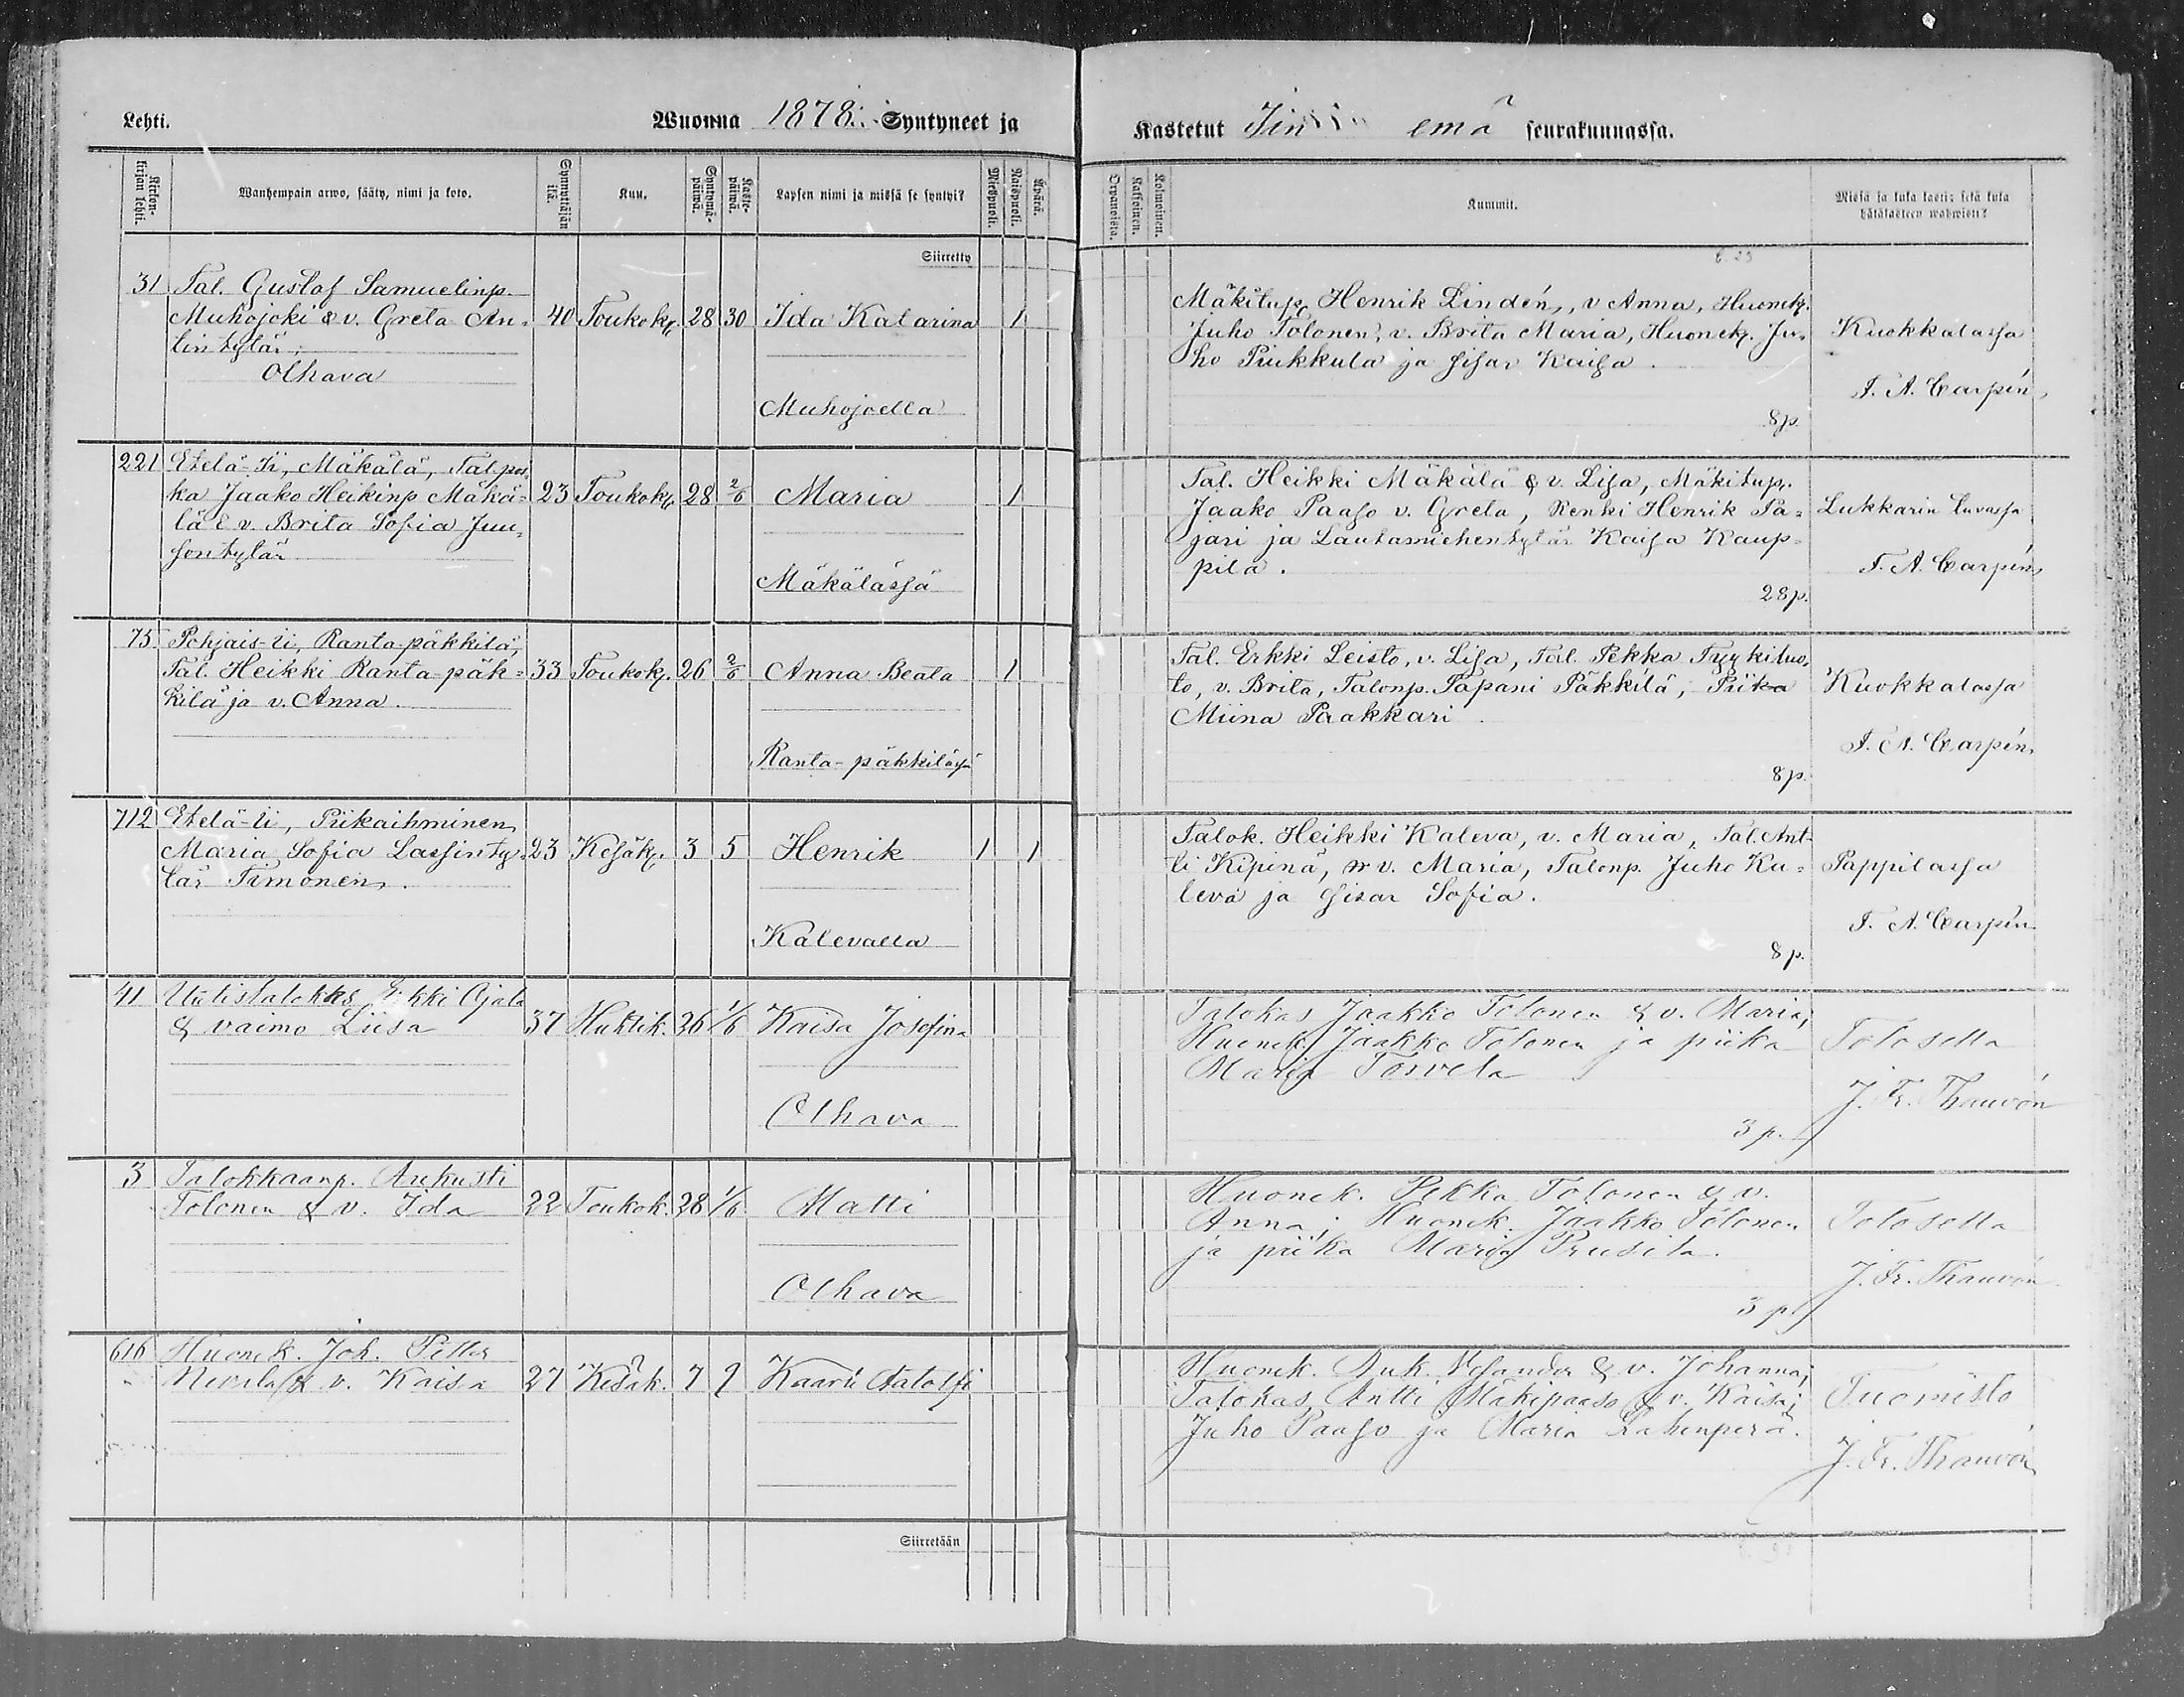 Lehti.
Wuonna 1878 Syntyneet ja
Kastetut Iin emä seurakunnassa.
Kirkonkirjan lehti.
Wanhempain arwo, sääty, nimi ja koto.
Synnyttäjän ikä.
Kuu.
Syntymäpäiwä.
Kastepäiwä.
Lapsen nimi ja missä se syntyi?
Miespuoli.
Naispuoli.
Äpärä.
Orpanoista.
Kaksoinen.
Kolmoinen.
Kummit.
Missä ja kuka kasti; sekä kuka
hätäkasteen wahwisti?
Siirretty
31 Tal. Gustaf Samuelinp.
Muhojoki & v. Greta An-
tintytär;
Olhava
40 Toukok. 28 30 Ida Katarina 1
Muhojoella
Mäkitup. Henrik Lindén, v Anna, Huonek.
Juho Tolonen, v. Brita Maria, Huonek. Ju-
ho Piukkula ja sisar Kaisa.
8 p.
Kuokkalassa
F. A. Carpén
221 Etelä-Ii, Mäkälä, Tal poi-
ka Jaako Heikinp Mäkä-
lä & v. Brita Sofia Juu-
sontytär
23 Toukok. 28 2/6 Maria 1
Mäkälässä
Tal. Heikki Mäkälä & v. Lisa, Mäkitup.
Jaako Paaso v. Greta, Renki Henrik Pa-
jari ja Lautamiehentytär Kaisa Kaup-
pila.
28 p.
Lukkarin luvassa
F. A. Carpén
75 Pohjais-Ii, Ranta-päkkilä,
Tal. Heikki Ranta-päk-
kilä ja v. Anna.
33 Toukok. 26 2/6 Anna Beata 1
Ranta-päkkilässä
Tal. Erkki Leisto, v. Lisa, Tal. Pekka Tyykiluo-
to, v. Brita, Talonp. Tapani Päkkilä, Piika
Miina Paakkari.
8 p.
Kuokkalassa
F. A. Carpén
712 Etelä-Ii, Piikaihminen
Maria Sofia Lassinty-
tär Timonen.
23 Kesäk. 3 5 Henrik 1 1
Kalevalla
Talok. Heikki Kaleva, v. Maria, Tal. Ant-
ti Kipinä, v. Maria, Talonp. Juho Ka-
leva ja sisar Sofia.
8 p.
Pappilassa
F. A. Carpén
41 Uutistalokas Erkki Ojala
& vaimo Liisa
37 Huhtik. 26 1/6 Kaisa Josefina
Olhava
Talokas Jaakko Tolonen & v. Maria;
Huonek. Jaakko Tolonen ja piika
Maria Torvela
3 p.
Tolosella
J. Fr. Thauvón
3 Talokkaanp. Aukusti
Tolonen & v. Ida
22 Toukok. 28 1/6 Matti
Olhava
Huonek. Pekka Tolonen & v.
Anna; Huonek. Jaakko Tolonen
ja piika Maria Prusila.
3 p.
Tolosella
J. Fr. Thauvón
616 Huonek. Joh. Petter
Nivala & v. Kaisa
27 Kesäk. 7 9 Kaarli Aatolfi
Huonek. Auk. Velander & v. Johanna;
Talokas Antti Mäkipaaso & v. Kaisa;
Juho Paaso ja Maria Lahenperä.
Tuomisto
J. Fr. Thauvón
Siirretään